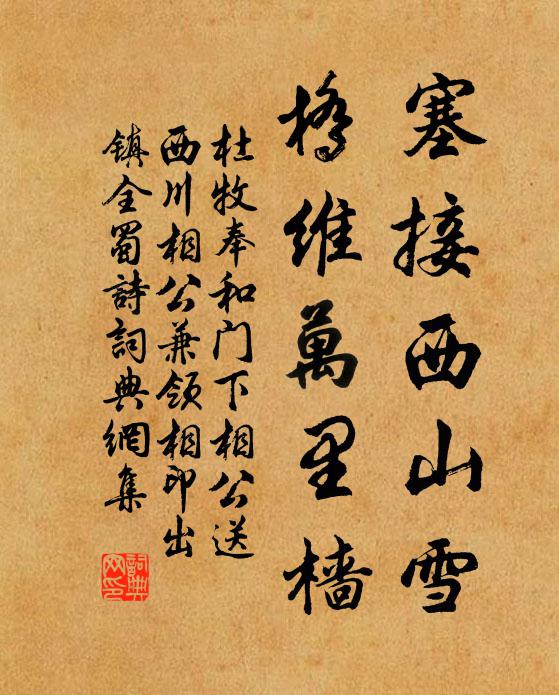 塞接西山雪
橋維萬里檣
杜牧奉和门下相公送
西川相公兼领相印出
镇全蜀詩詞典網集
詞典
网印